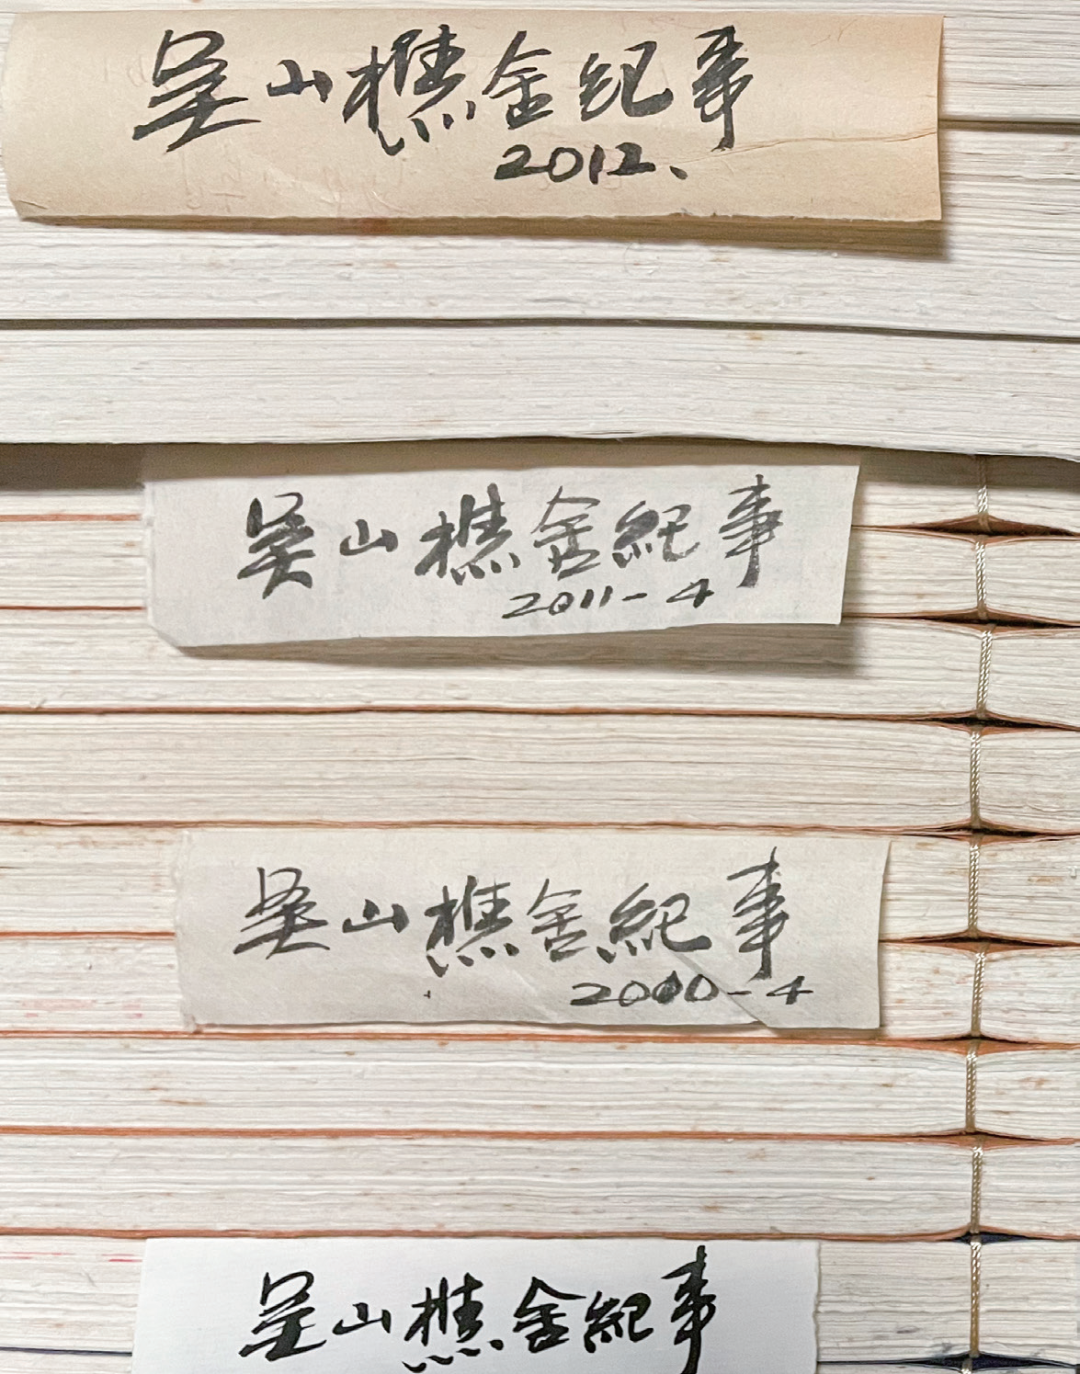 吴山樵舍紀事
2012、
吴山樵舍紀事
2011-4
吴山樵舍紀事
2000-4
吴山樵舍紀事